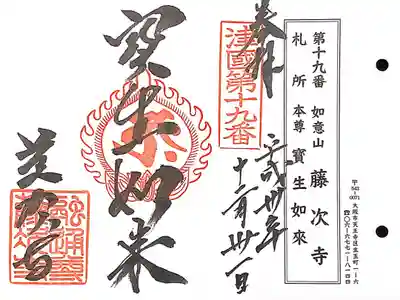 第十九番 如意山 藤次寺
札所 本尊 寳生如來
〒543-0071 大阪市天王寺区生玉町一-六
四〇六-六七七一-八一四四
奉拝
津國第十九番
平成卅年
十二月卅一日
寳生如来
藤次寺